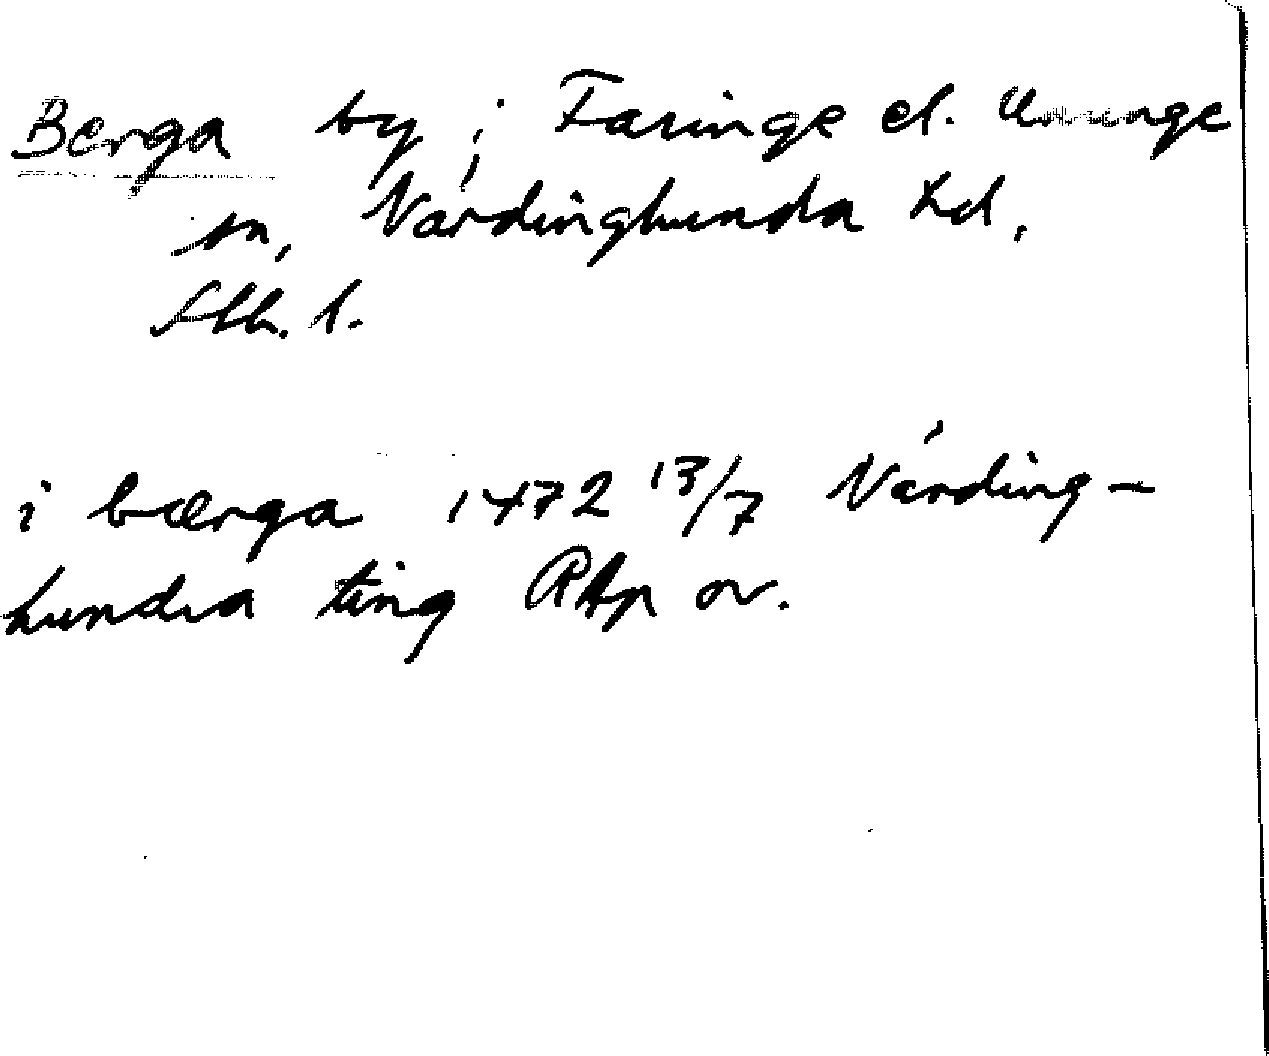 Berga by, i Faringe el. Ununge
sn, Närdinghundra hd,
Sthlm. l.
i bærga 1472 13/7 Närding-
hundra ting RAp or.